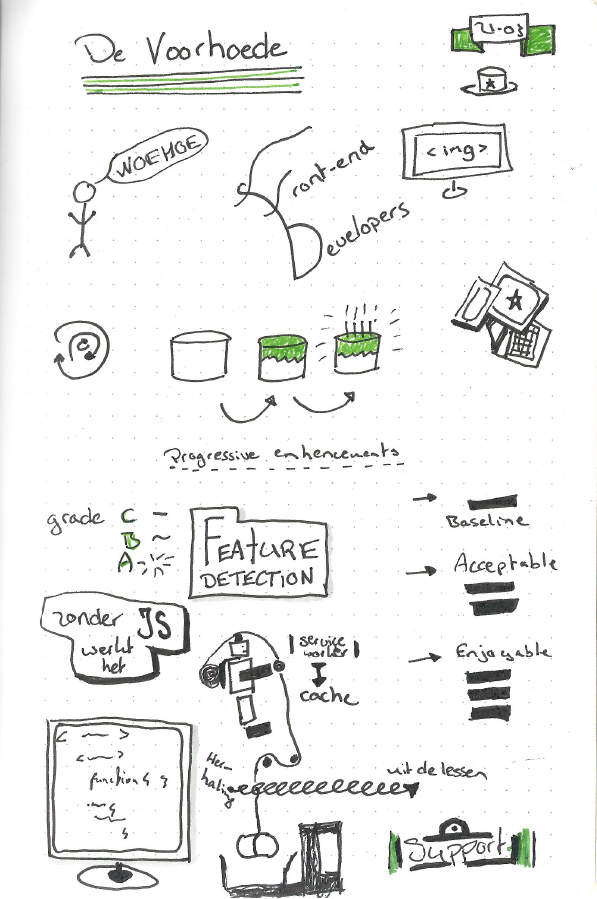 De Voorhoede
21-03
WOEHOE
Front-end
Developers
<img>
e
Progressive enhencements
grade C -
B ~
A
FEATURE
DETECTION
Baseline
Acceptable
Enjoyable
zonder JS
werkt
het
service
worker
cache
function { }
{
}
Her-
haling
uit de lessen
Support